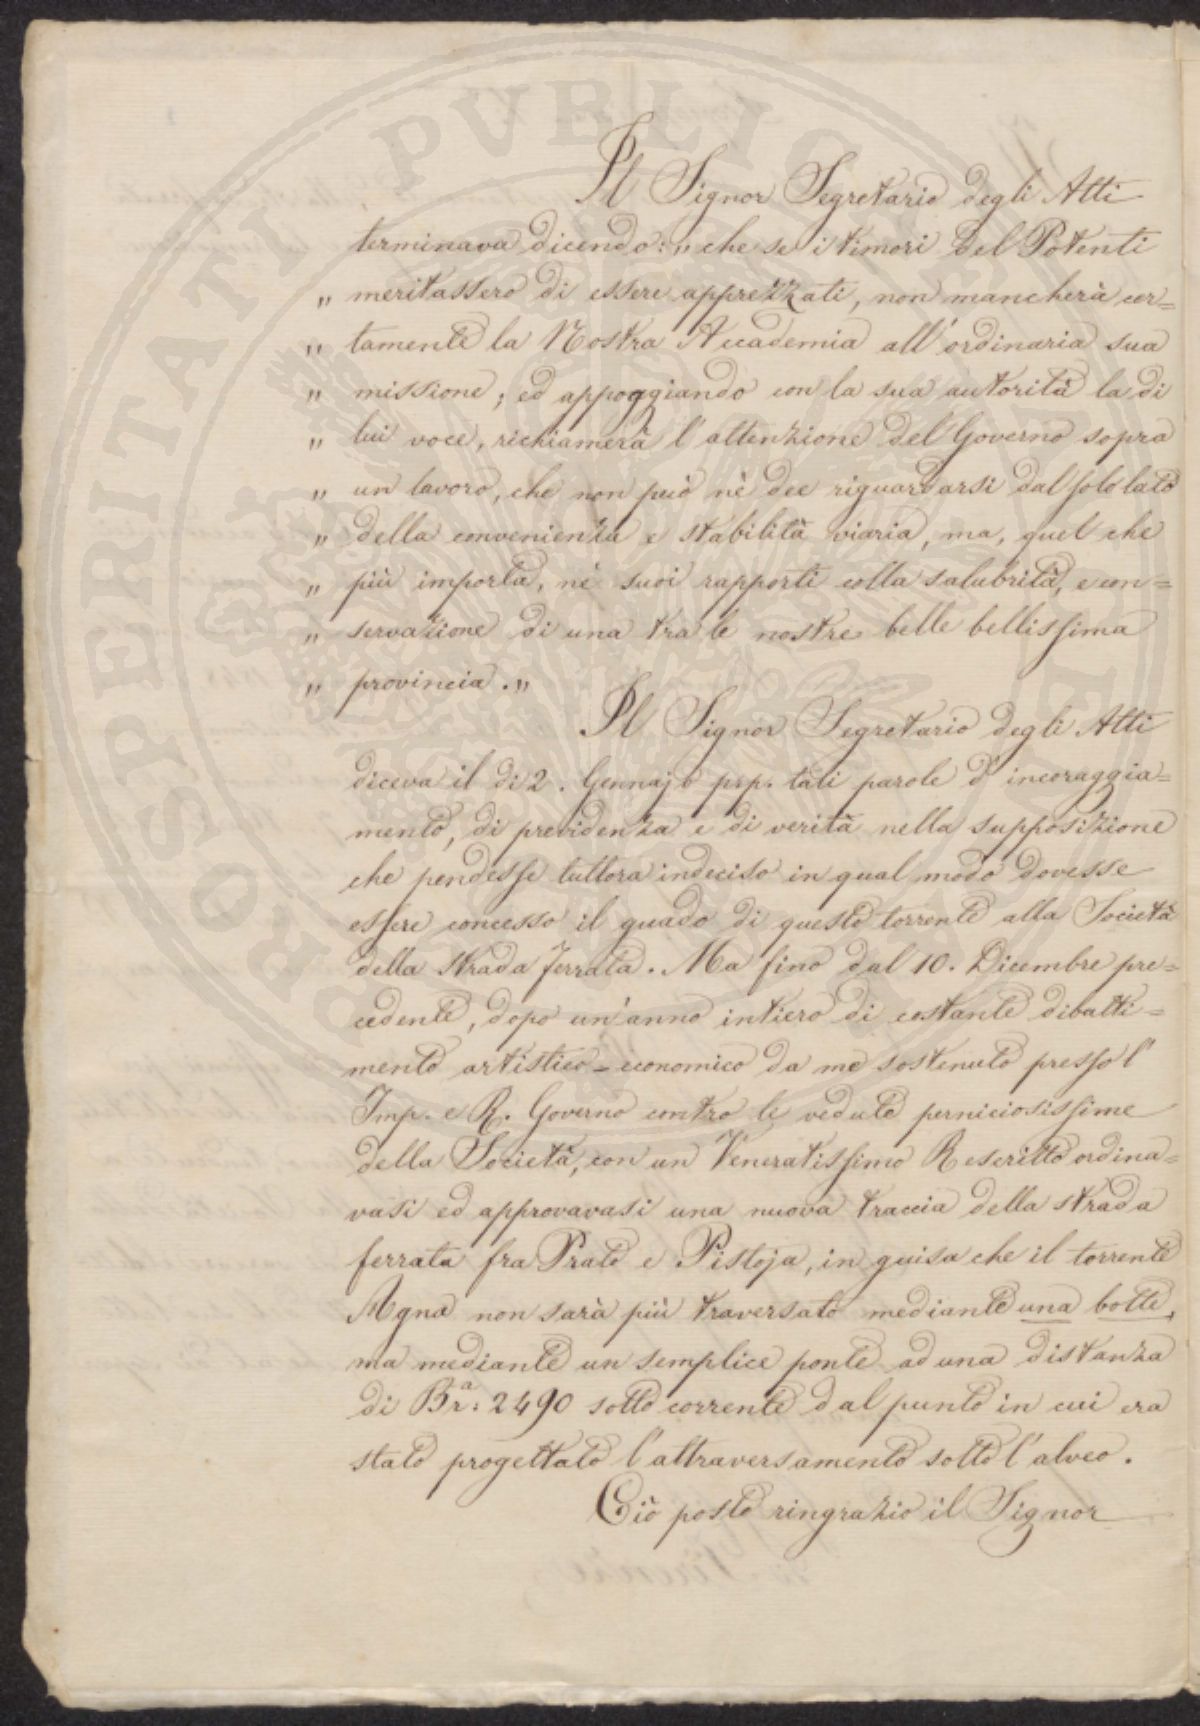 Il Signor Segretario degli Atti
terminava dicendo: „ che se i timori del Potenti
„ meritassero di essere apprezzati, non mancherà cer=
„ tamente la Nostra Accademia all'ordinaria sua
„ missione; ed appoggiando con la sua autorità la di
„ lui voce, richiamerà l'attenzione del Governo sopra
„ un lavoro, che non può nè dee riguardarsi dal solo lato
„ della convenienza e stabilità viaria, ma, quel che
„ più importa, nè suoi rapporti colla salubrità, e con=
„ servazione di una tra le nostre belle bellissima
„ provincia. „
Il Signor Segretario degli Atti
diceva il dì 2. Gennajo pxp. tali parole d'incoraggia=
mento, di previdenza e di verità nella supposizione
che pendesse tuttora indeciso in qual modo dovesse
essere concesso il guado di questo torrente alla Società
della strada ferrata. Ma fino dal 10. Dicembre pre=
cedente, dopo un'anno intiero di costante dibatti=
mento artistico=economico da me sostenuto presso l'
Imp. e R. Governo contro le vedute perniciosissime
della Società, con un Veneratissimo Rescritto ordina=
vasi ed approvavasi una nuova traccia della strada
ferrata fra Prato e Pistoja, in guisa che il torrente
Agna non sarà più traversato mediante una botte,
ma mediante un semplice ponte ad una distanza
di Bra: 2490 sotto corrente dal punto in cui era
stato progettato l'attraversamento sotto l'alveo.
Ciò posto ringrazio il Signor
PROSPERITATI PVBLICAE